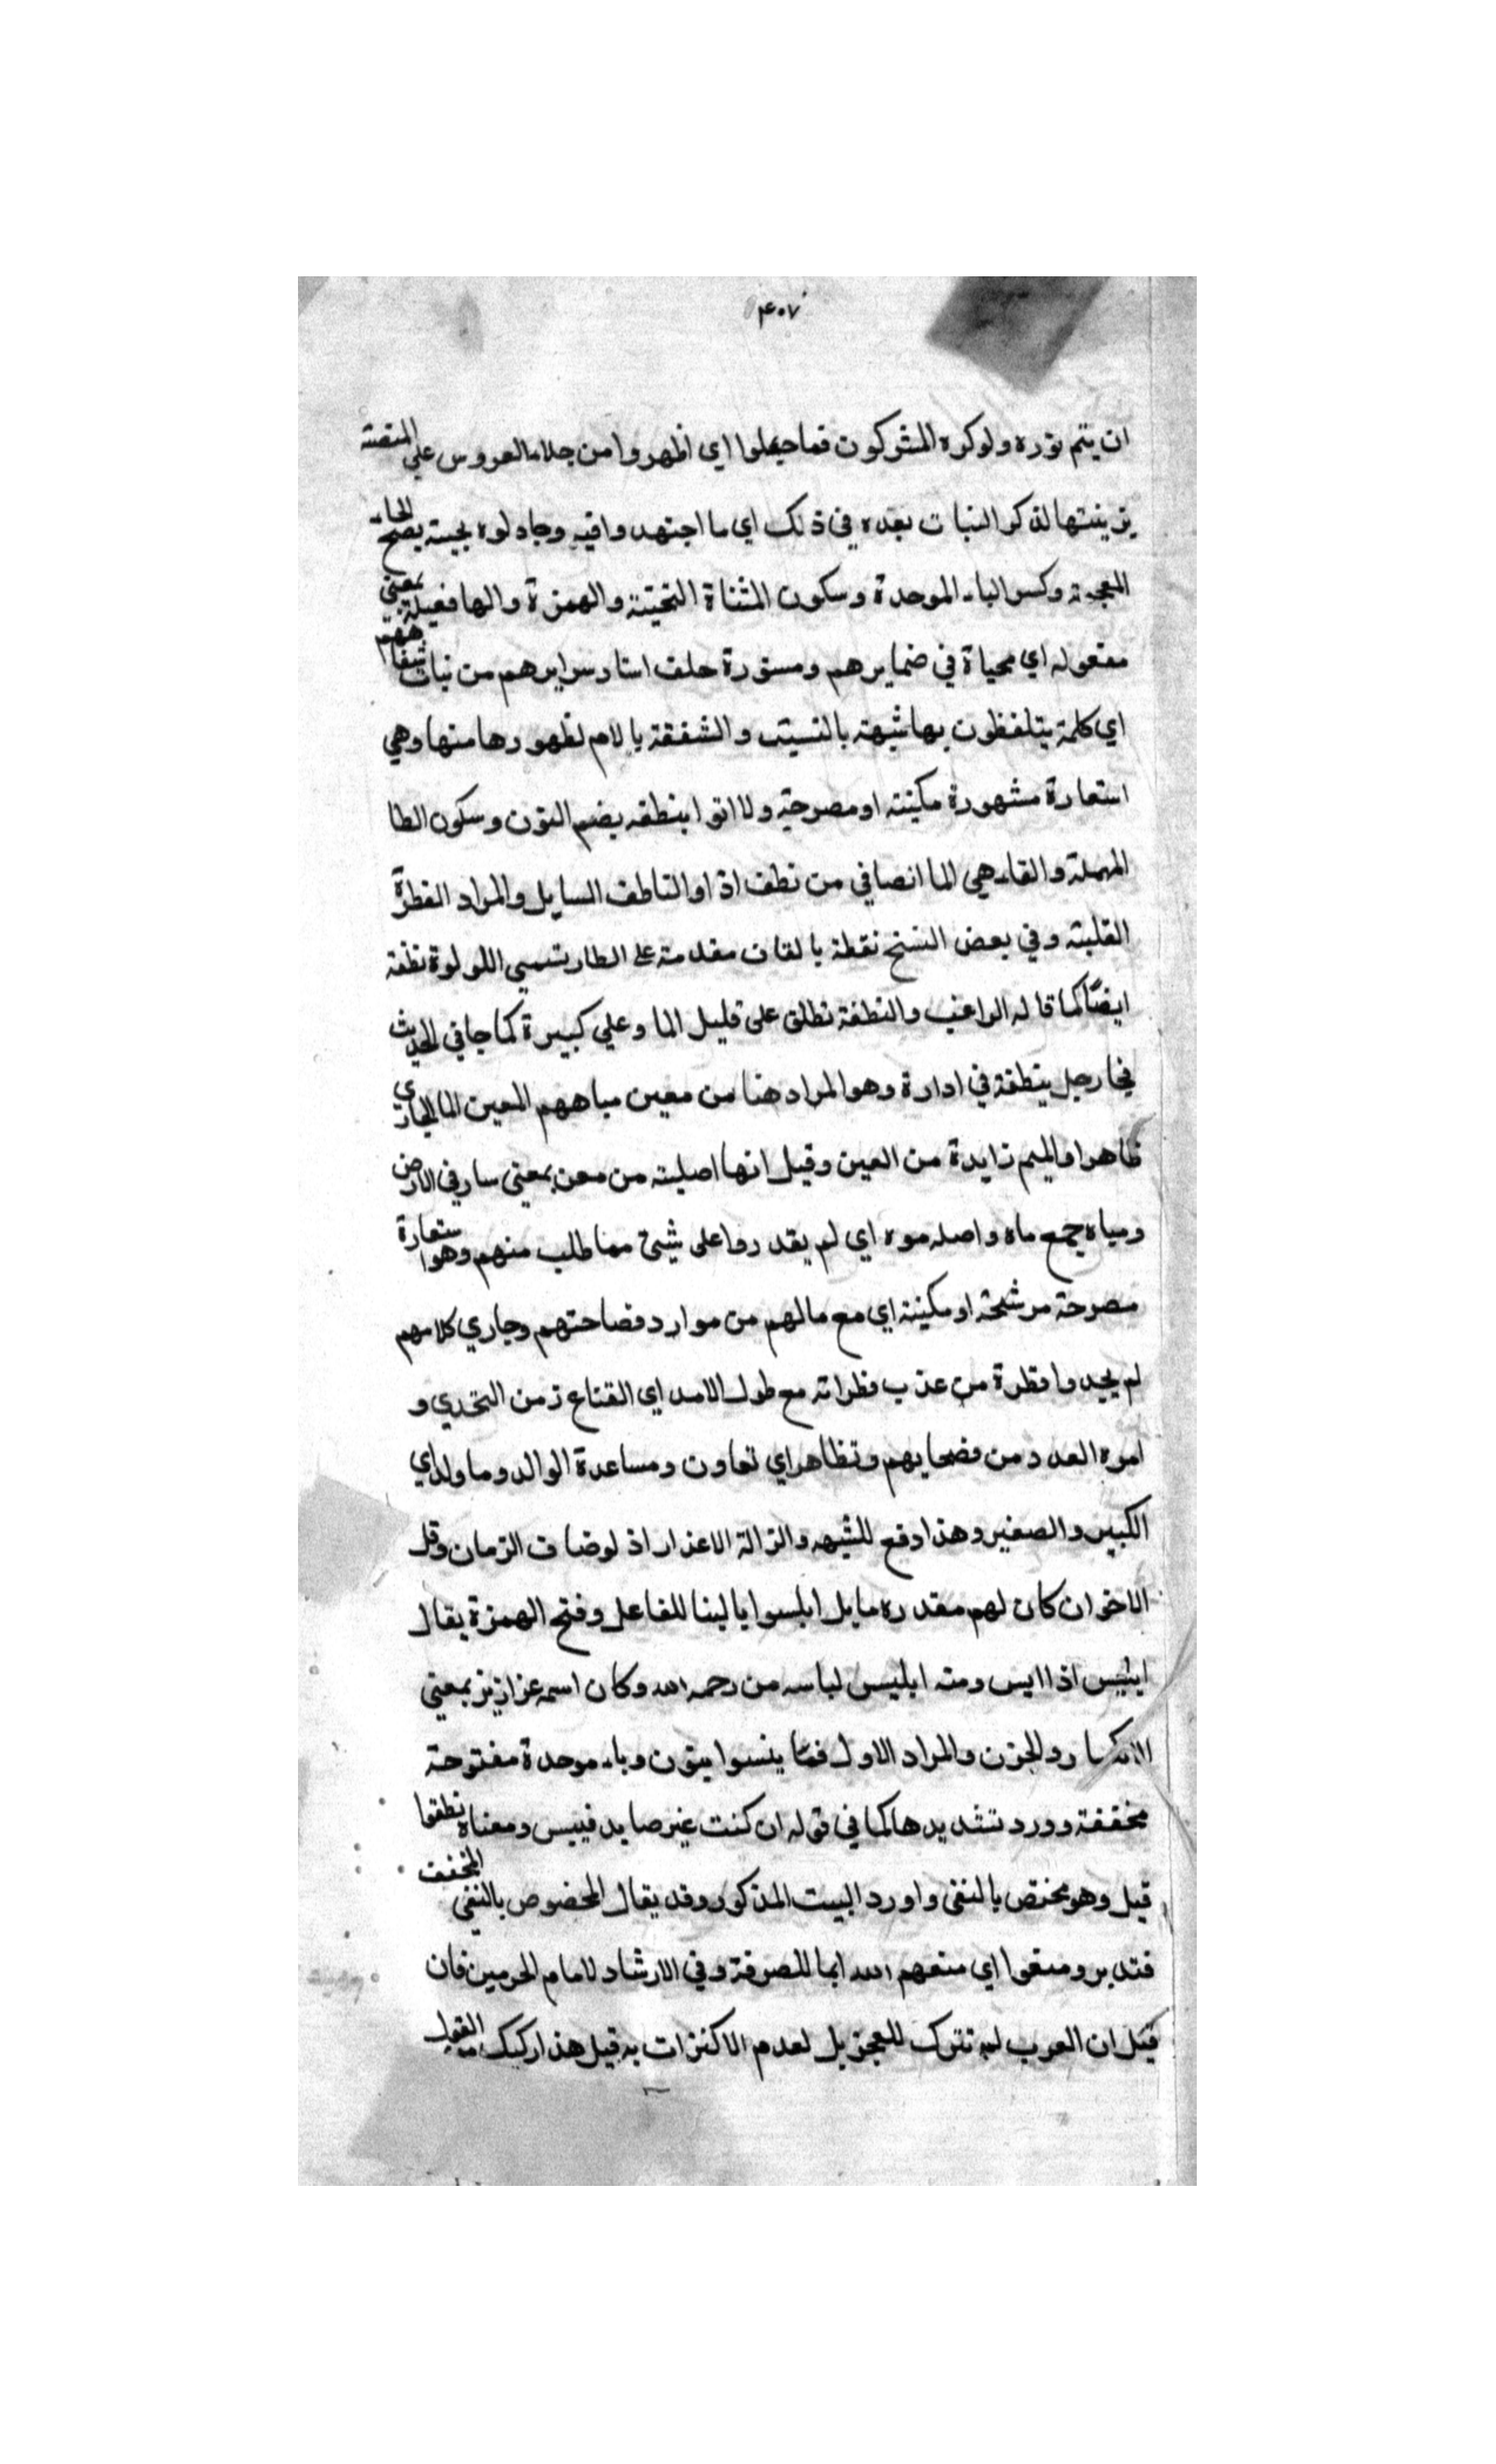 ۴۰۷
ان يتم نوره ولو كره المشركون فما جعلوا اي اظهروا من جلاء العروس علي المنصة
يزينتها لذكر النبات بعده في ذلك اي ما اجتهدوا فيه وجادلوه بجبيئة بضح الخاء
المعجمة وكسر الباء الموحدة وسكون المثناة التحتية والهمزة والها فعيلة بمعني
مفعوله اي مخباة في ضمايرهم ومستورة خلف استار سرايرهم من نبات شفاههم
اي كلمة يتلفظون بها شبهة بالنسيت والشفقة بالام لظهورها منها وهي
استعارة مشهورة مكينة او مصرحة ولا اتوا بنطفه بضم النون وسكون الطا
المهملة والفاء هي الما الصافي من نطف اذا والناطف السايل والمراد القطرة
القلبة وفي بعض النسخ نقطة بالقاف مقدمة على الطا رتسمي اللولوة نطفة
ايضًا كما قاله الراغب والنطفة تطلق على قليل الما وعلي كبيرة كما جا في الحديث
فجا رجل بنطفة في ادارة وهو المراد هنا من معين مياههم المعين الما الجاري
ظاهرا والميم زايدة من العين وقيل انها اصلية من معن بمعني سار في الارض
ومياه جمع ماه واصله موه اي لم يقدروا على شيئ مما طلب منهم وهو استعارة
مصرحة مرشحة او مكينة اي مع مالهم من موارد فصاحتهم وجاري كلامهم
لم يجدوا قطرة من عذب قطراته مع طول الامد اي القناع زمن التحدي و
امره العدد من فصحايهم وتظاهر اي تعاون ومساعدة الوالد وما ولد اي
الكبير والصغير وهذا دفع للشبهه والزالة الاعذار اذ لو ضاف الزمان وقل
الاخوان كان لهم مقدره ما بل ابلسوا بالبنا للفاعل وفتح الهمزة يقال
ابليس اذا ايس ومنه ابليس لياسه من رحمه الله وكان اسمه عزازيز بمعني
الانكسار والحزن والمراد الاول فما ينسوا بنون وباء موحدة مفتوحة
مخففة وورد تشديدها كما في قوله ان كنت غير صايد فيبس ومعناه نطقوا
قيل وهو مختص بالنفى واورد البيت المذكور وقد يقال المخصوص بالنفي المخفف
فتدبر ومنعوا اي منعهم الله ايما للصرفة وفي الارشاد لامام الحرمين فان
قيل ان العرب لم تترك للعجز بل لعدم الاكتزات به قيل هذا ركيك القول